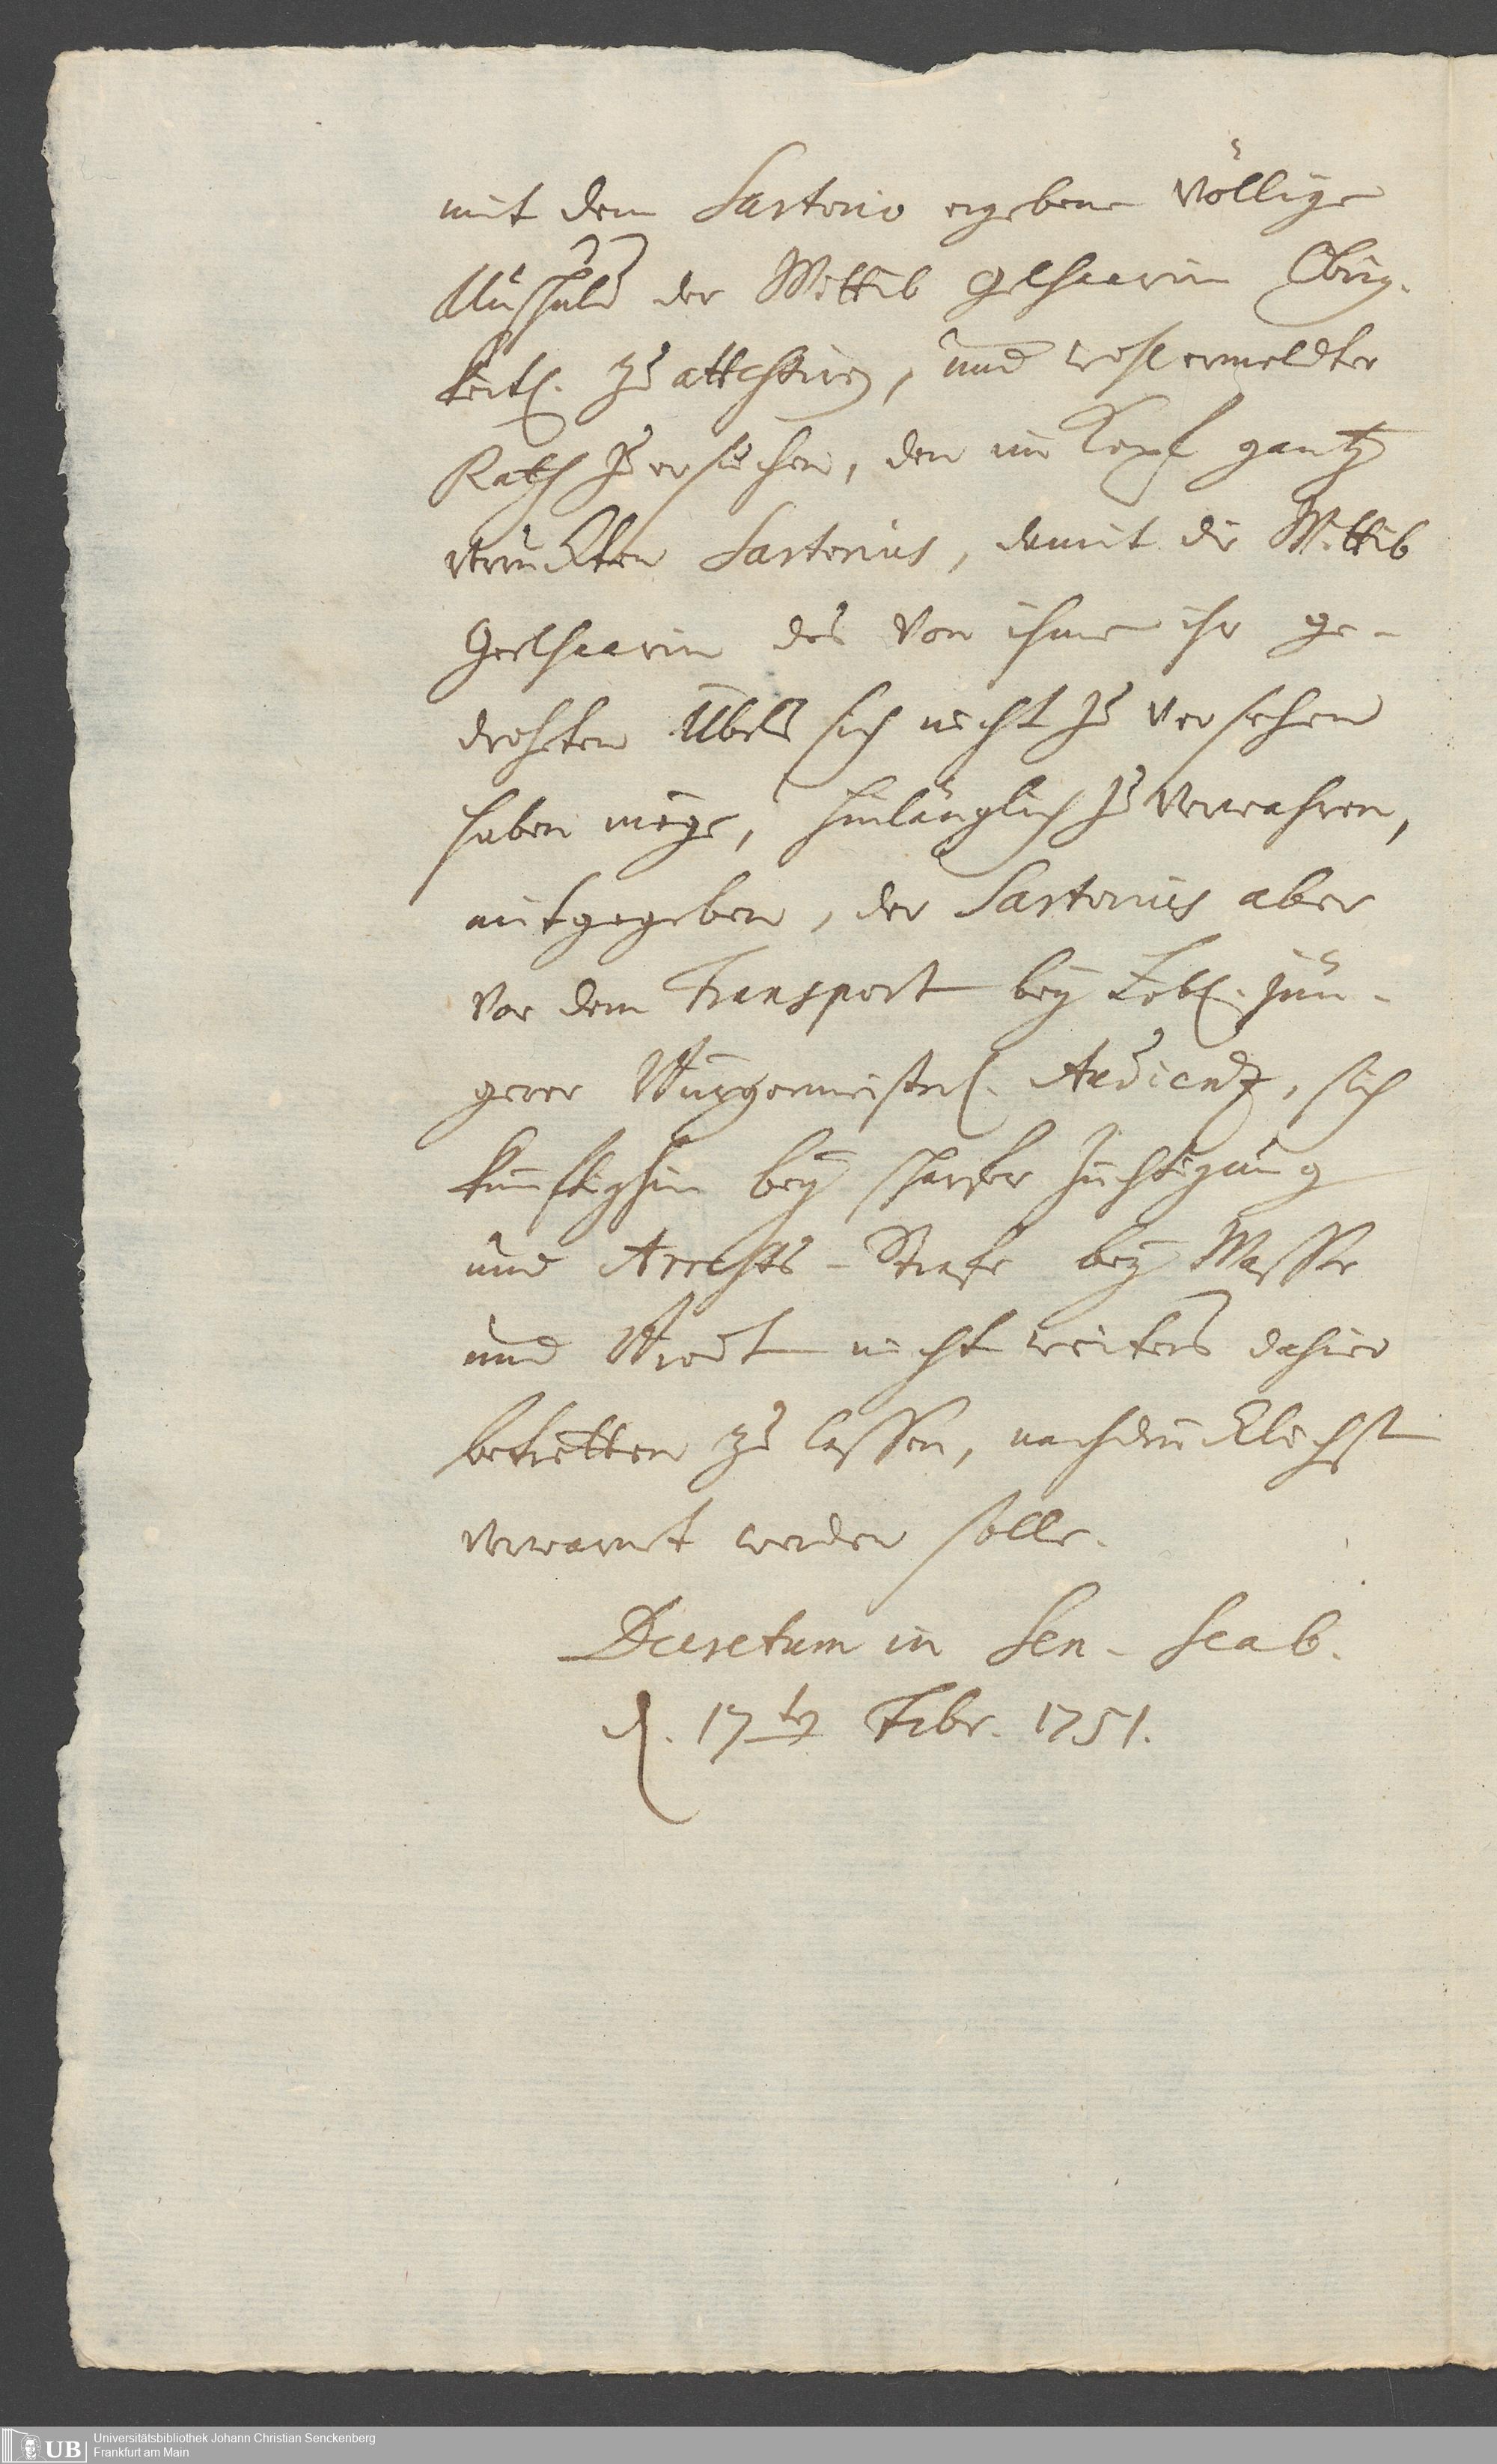 mit dem Sartorio ergebene völlige
Unschuld der Wittib Gelhaarin Obrig-
keitl. zu attestiren, und wohlermeldter
Rath zu ersuchen, den im Kopf gantz
verruckten Sartorius, damit die Wittib
Gelhaarin des von ihme ihr ge-
droheten Übels sich nicht zu versehen
haben möge, hinlänglich zu verwahren,
mitgegeben, der Sartorius aber
vor dem Transport bey Löbl. jün-
gerer Burgermeisterl. Audientz, sich
künfftighin bey scharfer Züchtigung
und Arrests-Strafe bey Wasser
und Brodt nicht weiters dahier
betretten zu lassen, nachdrücklichst
verwarnt werden solle.
Decretum in Sen. Scab.
d. 17ten Febr. 1751.
Universitätsbibliothek Johann Christian Senckenberg
Frankfurt am Main
UB